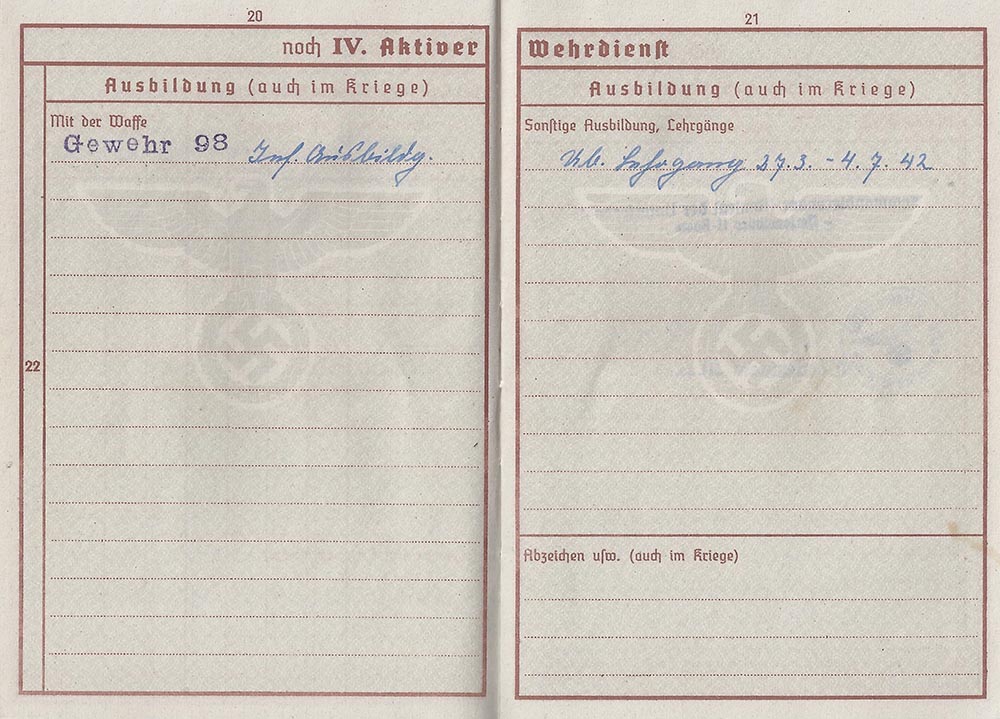 20
noch IV. Aktiver
Ausbildung (auch im Kriege)
Mit der Waffe
Gewehr 98 Inf. Ausbildg.
22
21
Wehrdienst
Ausbildung (auch im Kriege)
Sonstige Ausbildung, Lehrgänge
Lehrgang 27.3. - 4.7. 42
Abzeichen usw. (auch im Kriege)